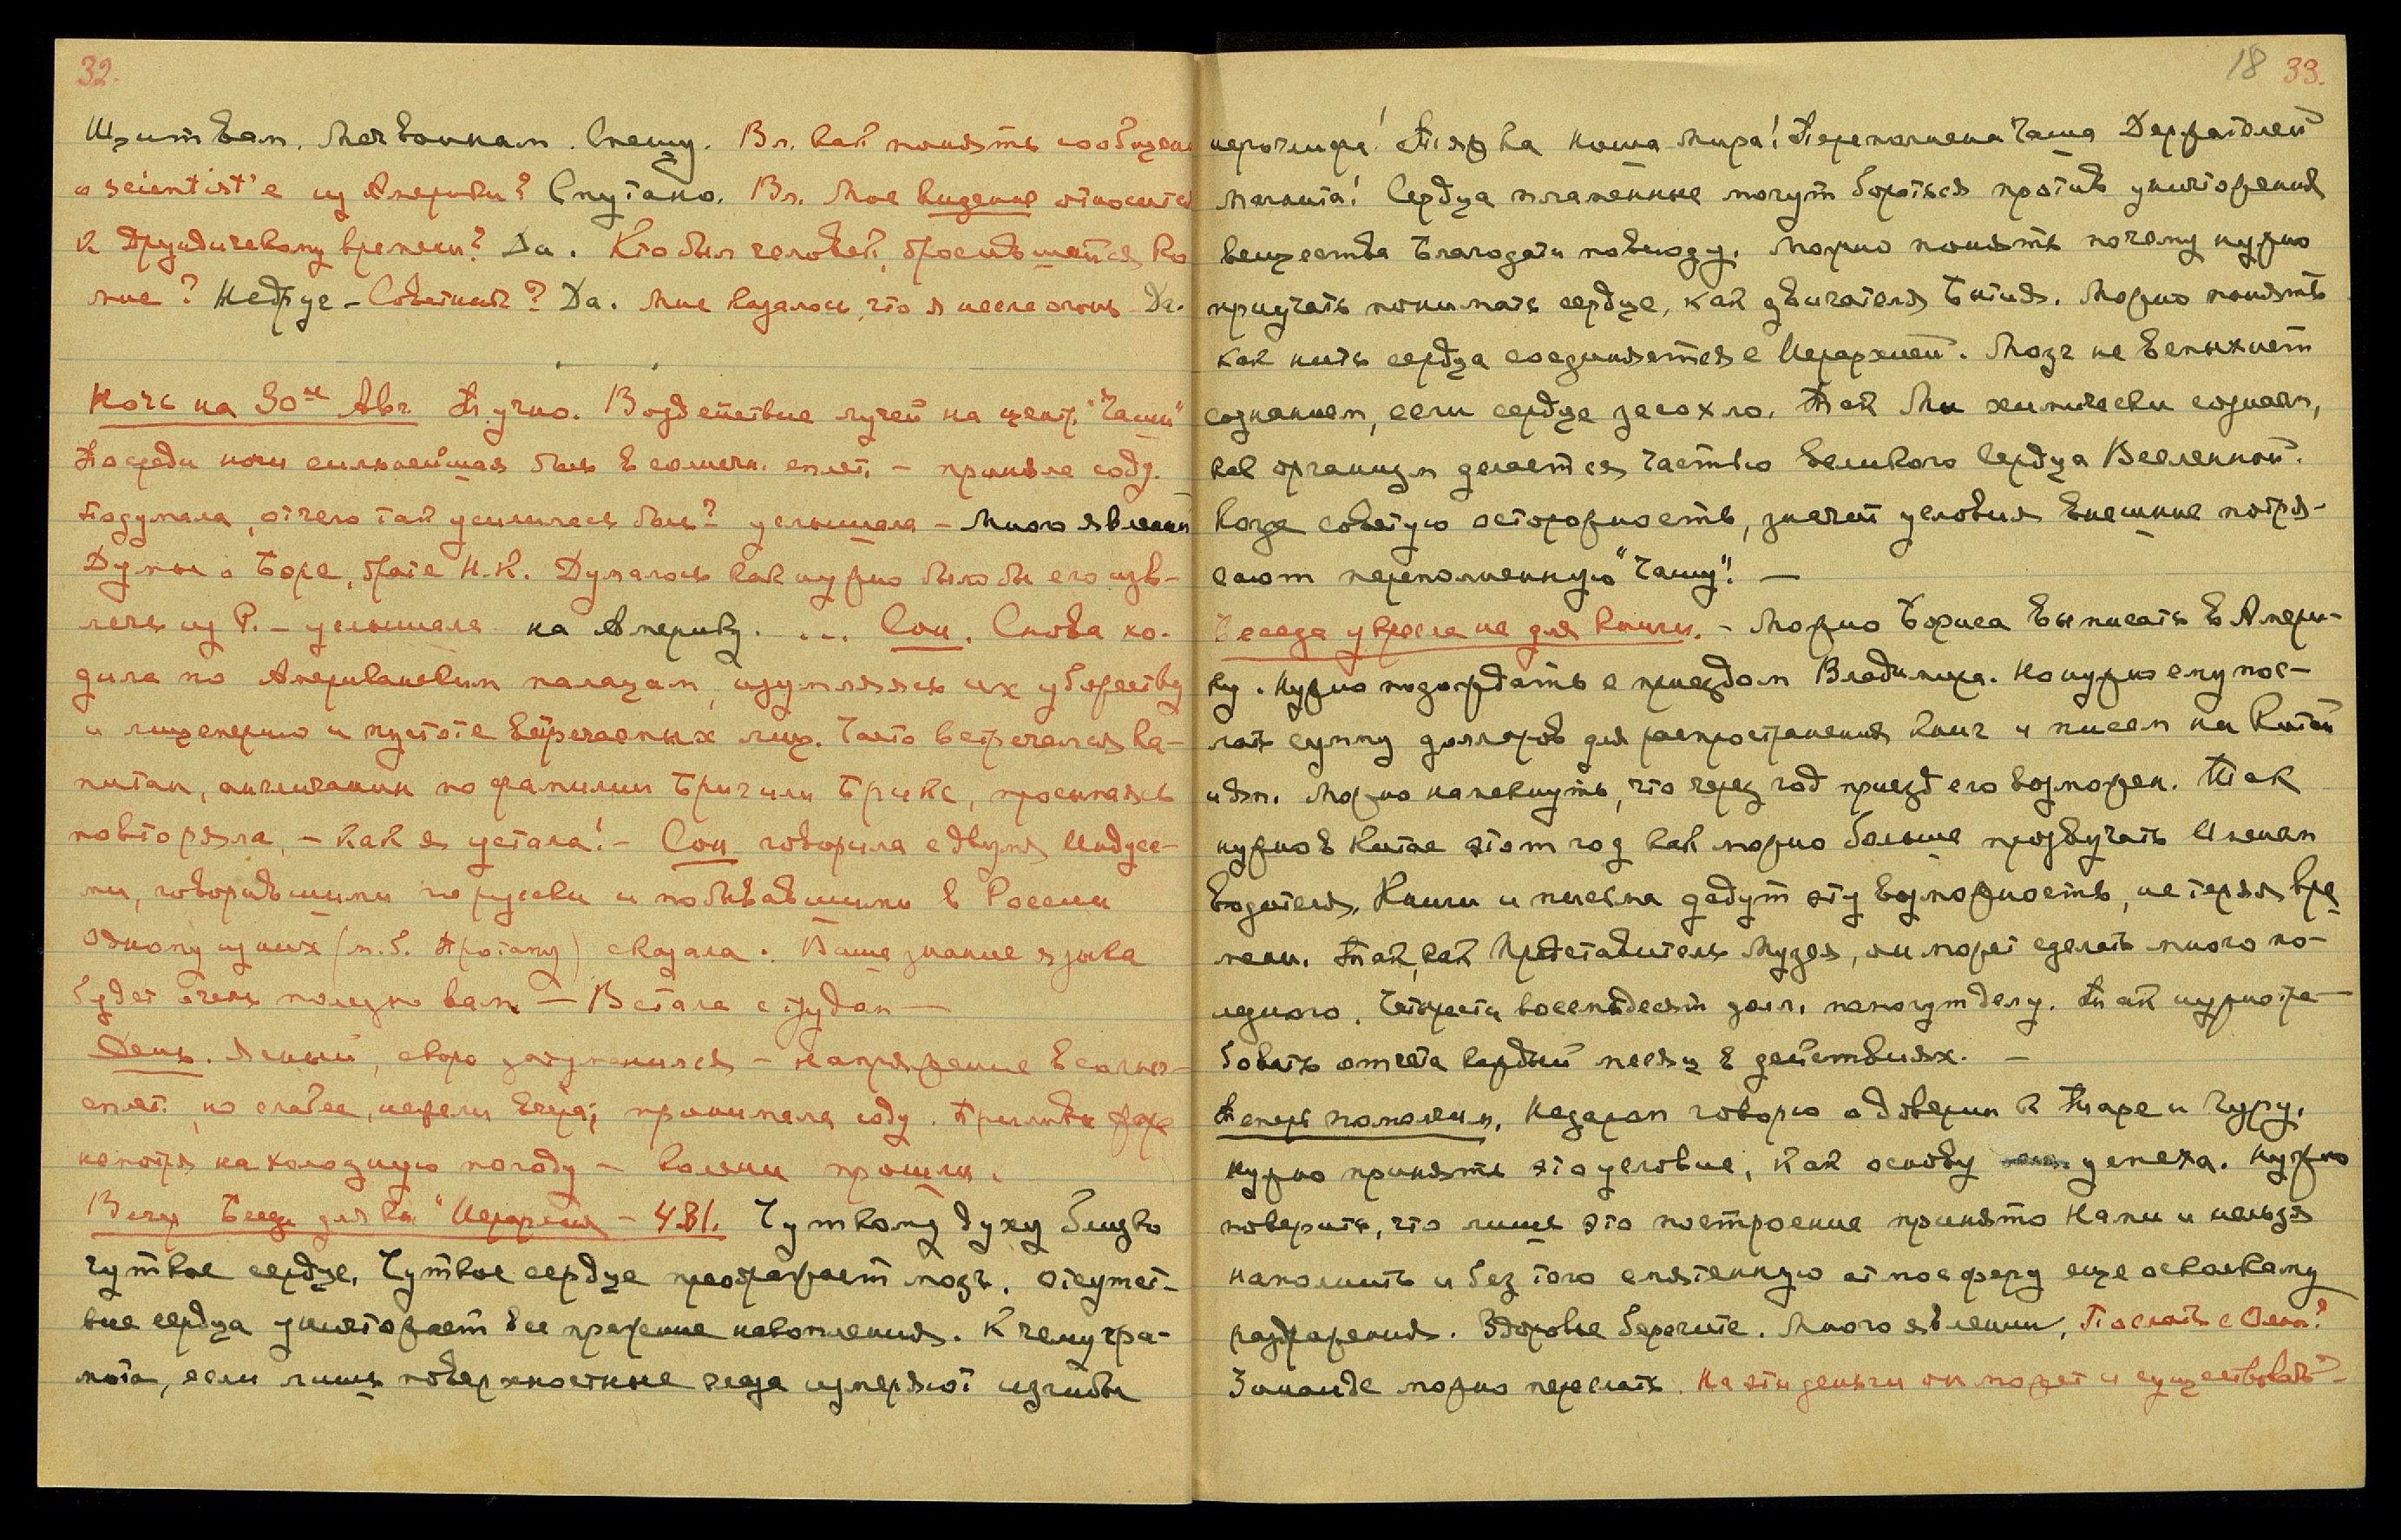 32.
Щит Вам. Меч Воинам. Спешу. Вл. как понять сообщен
о scientist'е из Америки? Спутано. Вл. Мое видение относится
к Друидическому времени? Да. Кто был человек, бросившийся ко
мне? Недруг – Советник? Да. Мне казалось, что я несла огонь Да.
Ночь на 30ое Авг. Тучно. Воздействие лучей на центр. "Чаши"
Посреди ночи сильнейшая боль в солнечн. сплет. – приняла соду.
Подумала, отчего так усилилась боль? услышала – Много явлений
Думы о Боре, брате Н.К. Думалось как нужно было бы его изв-
лечь из Р. – услышала на Америку. ... Сон. Снова хо-
дила по Американским палацам, изумляясь их убожеству
и лицемерию и пустоте встречаемых лиц. Часто встречался ка-
питан, англичанин по фамилии Бриг или Брикс, просыпаясь
повторяла, – как я устала! – Сон говорила с двумя Индуса-
ми, говорившими по русски и побывавшими в России
Одному из них (м.б. Пратапу) сказала. Ваше знание языка
будет очень полезно вам – Встала с трудом –
День. Ясный, скоро затуманился – напряжение в солнеч-
сплет. но слабее, нежели вчера; принимала соду. Приливы жара
несмотря на холодную погоду – колики прошли.
Вечер Беседа для кн. "Иерархия – 481. Чуткому духу близко
чуткое сердце. Чуткое сердце преображает мозг. Отсутст-
вие сердца уничтожает все прежние накопления. К чему гра-
мота, если лишь поверхностные глаза измеряют изгибы
18 33.
иероглифа! Тяжка ноша Мира! Переполнена Чаша Держателей
Магнита! Сердца пламенные могут бороться против уничтожения
вещества Благодати повсюду. Можно понять почему нужно
приучать понимать сердце, как двигателя Бытия. Можно понять
как нить сердца соединяется с Иерархией. Мозг не вспыхнет
сознанием, если сердце засохло. Так Мы химически создаем,
как организм делается частью великого Сердца Вселенной.
Когда советую осторожность, значит условия внешние потря-
сают переполненную "Чашу". –
Беседа у кресла не для книги. – Можно Бориса выписать в Амери-
ку. Нужно подождать с приездом Владимира. Но нужно ему пос-
лать сумму долларов для распространения книг и писем на Китай
и др. Можно намекнуть, что через год приезд его возможен. Так
нужно в Китае этот год как можно больше прозвучать Именем
Водителя. Книги и письма дадут эту возможность, не теряя вре
мени. Так, как Представитель Музея, он может сделать много по-
лезного. Четыреста восемьдесят долл. помогут делу. Так нужно тре-
бовать отчета каждый месяц в действиях. –
Теперь помолчим. Недаром говорю о доверии к Таре и Гуру.
Нужно принять это условие, как основу успеха. Нужно
поверить, что лишь это построение принято Нами и нельзя
наполнить и без того смятенную атмосферу еще осколками
раздражения. Здоровье берегите. Много явлений. Послать с Олькой?
Зинаиде можно переслать. На эти деньги он может и существовать? –